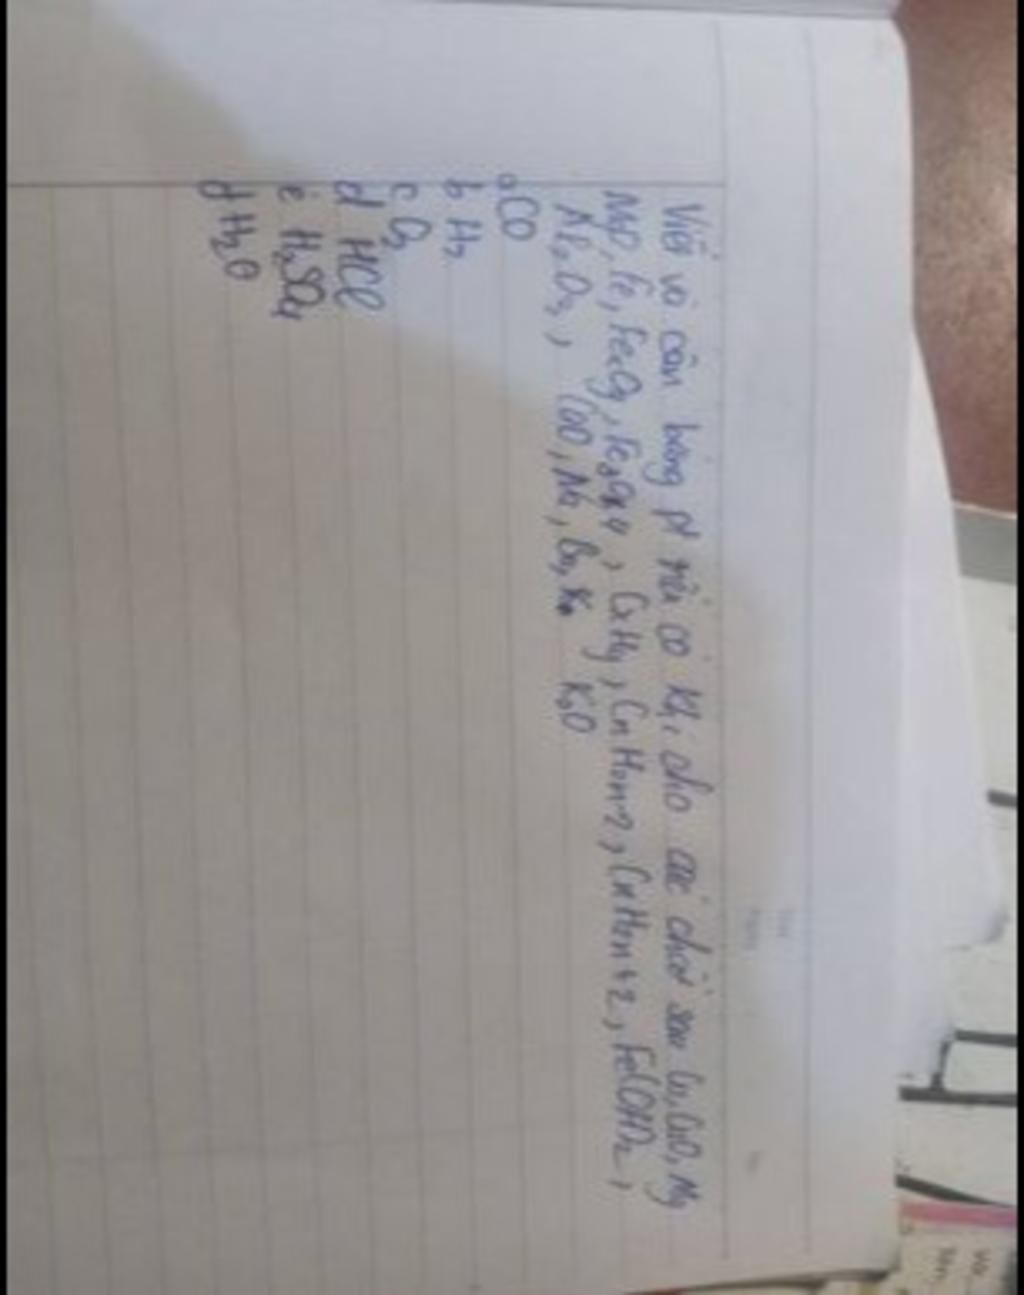 Viết và cân bằng pt nếu có khi cho các chất sau Cu, CuO, Mg
MgO, Fe, FexOy, Fe3O4, CxHy, CnH2n-2, CnH2n+2, Fe(OH)2,
Al2O3, CaO, Na, Ba, K2O
a CO
b H2
c O2
d HCl
e H2SO4
f H2O